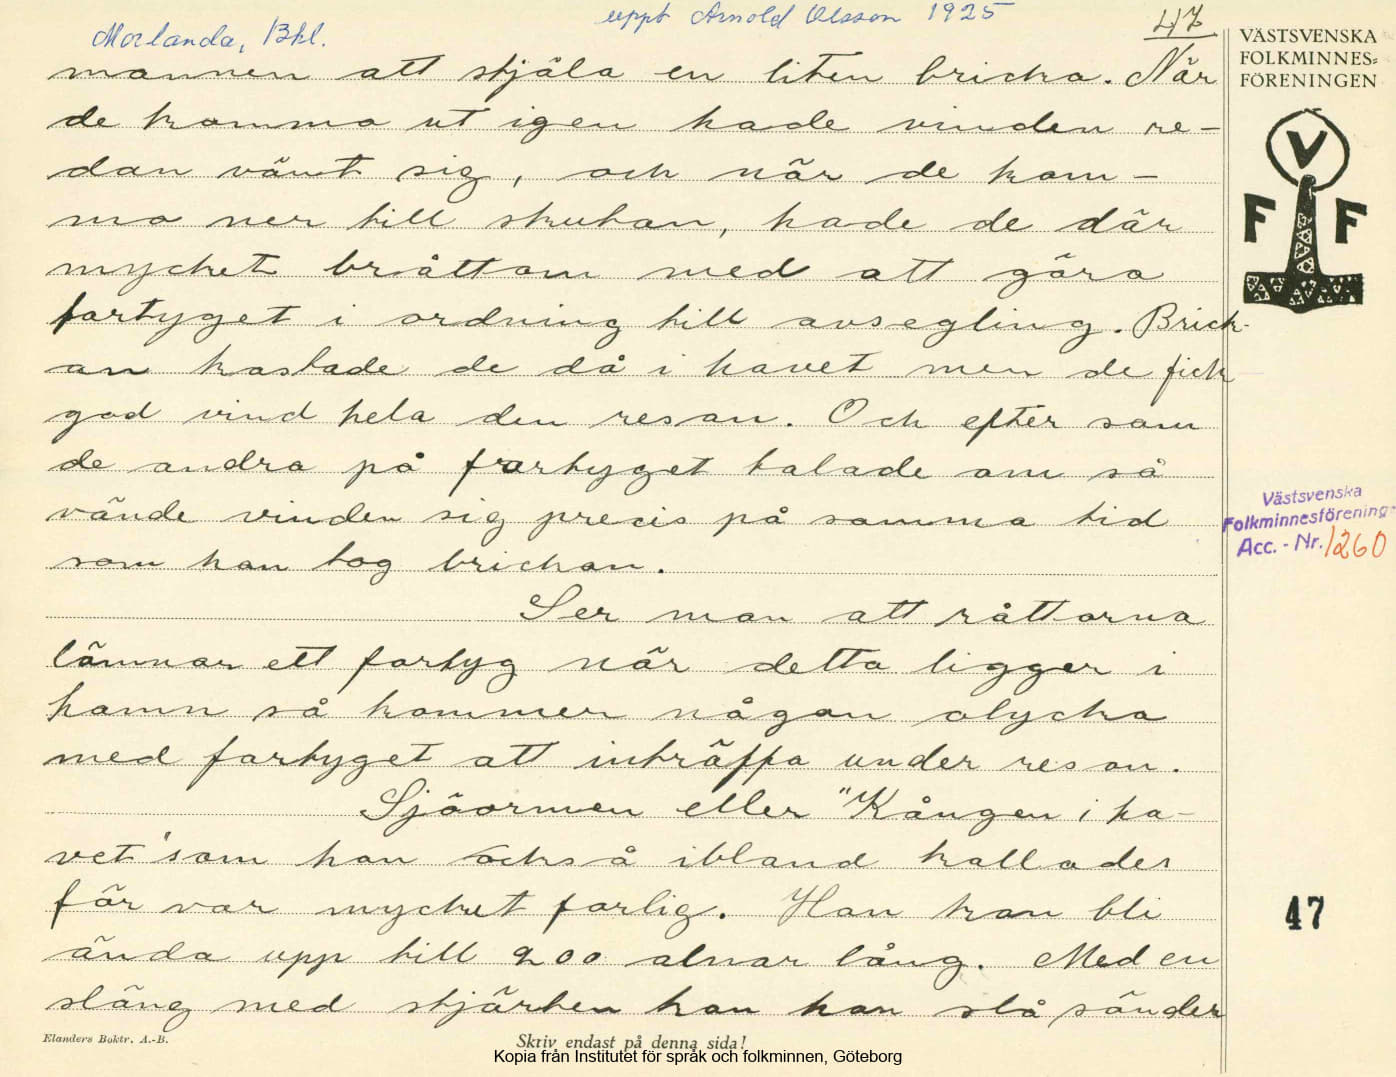 uppt Arnold Olsson 1925
47
Morlanda, Bhl.
VÄSTSVENSKA
FOLKMINNES=
FÖRENINGEN
V
F F
mannen att stjäla en liten bricka. När
de komma ut igen hade vinden re-
dan vänt sig, och när de kom-
ma ner till skutan, hade de där
mycket bråttom med att göra
fartyget i ordning till avsegling. Brick-
an kastade de då i havet men de fick
god vind hela den resan. Och efter som
de andra på fartyget talade om så
vände vinden sig precis på samma tid
som han tog brickan.
Ser man att råttorna
lämnar ett fartyg när detta ligger i
hamn så kommer någon olycka
med fartyget att inträffa under resan.
Sjöormen eller "Kången i ha-
vet" som han också ibland kallades
för var mycket farlig. Han kan bli
ända upp till 200 alnar lång. Med en
släng med stjärten kan han slå sönder
Västsvenska
Folkminnesförening-
Acc. - Nr. 1260
47
Elanders Boktr. A.-B.
Skriv endast på denna sida!
Kopia från Institutet för språk och folkminnen, Göteborg